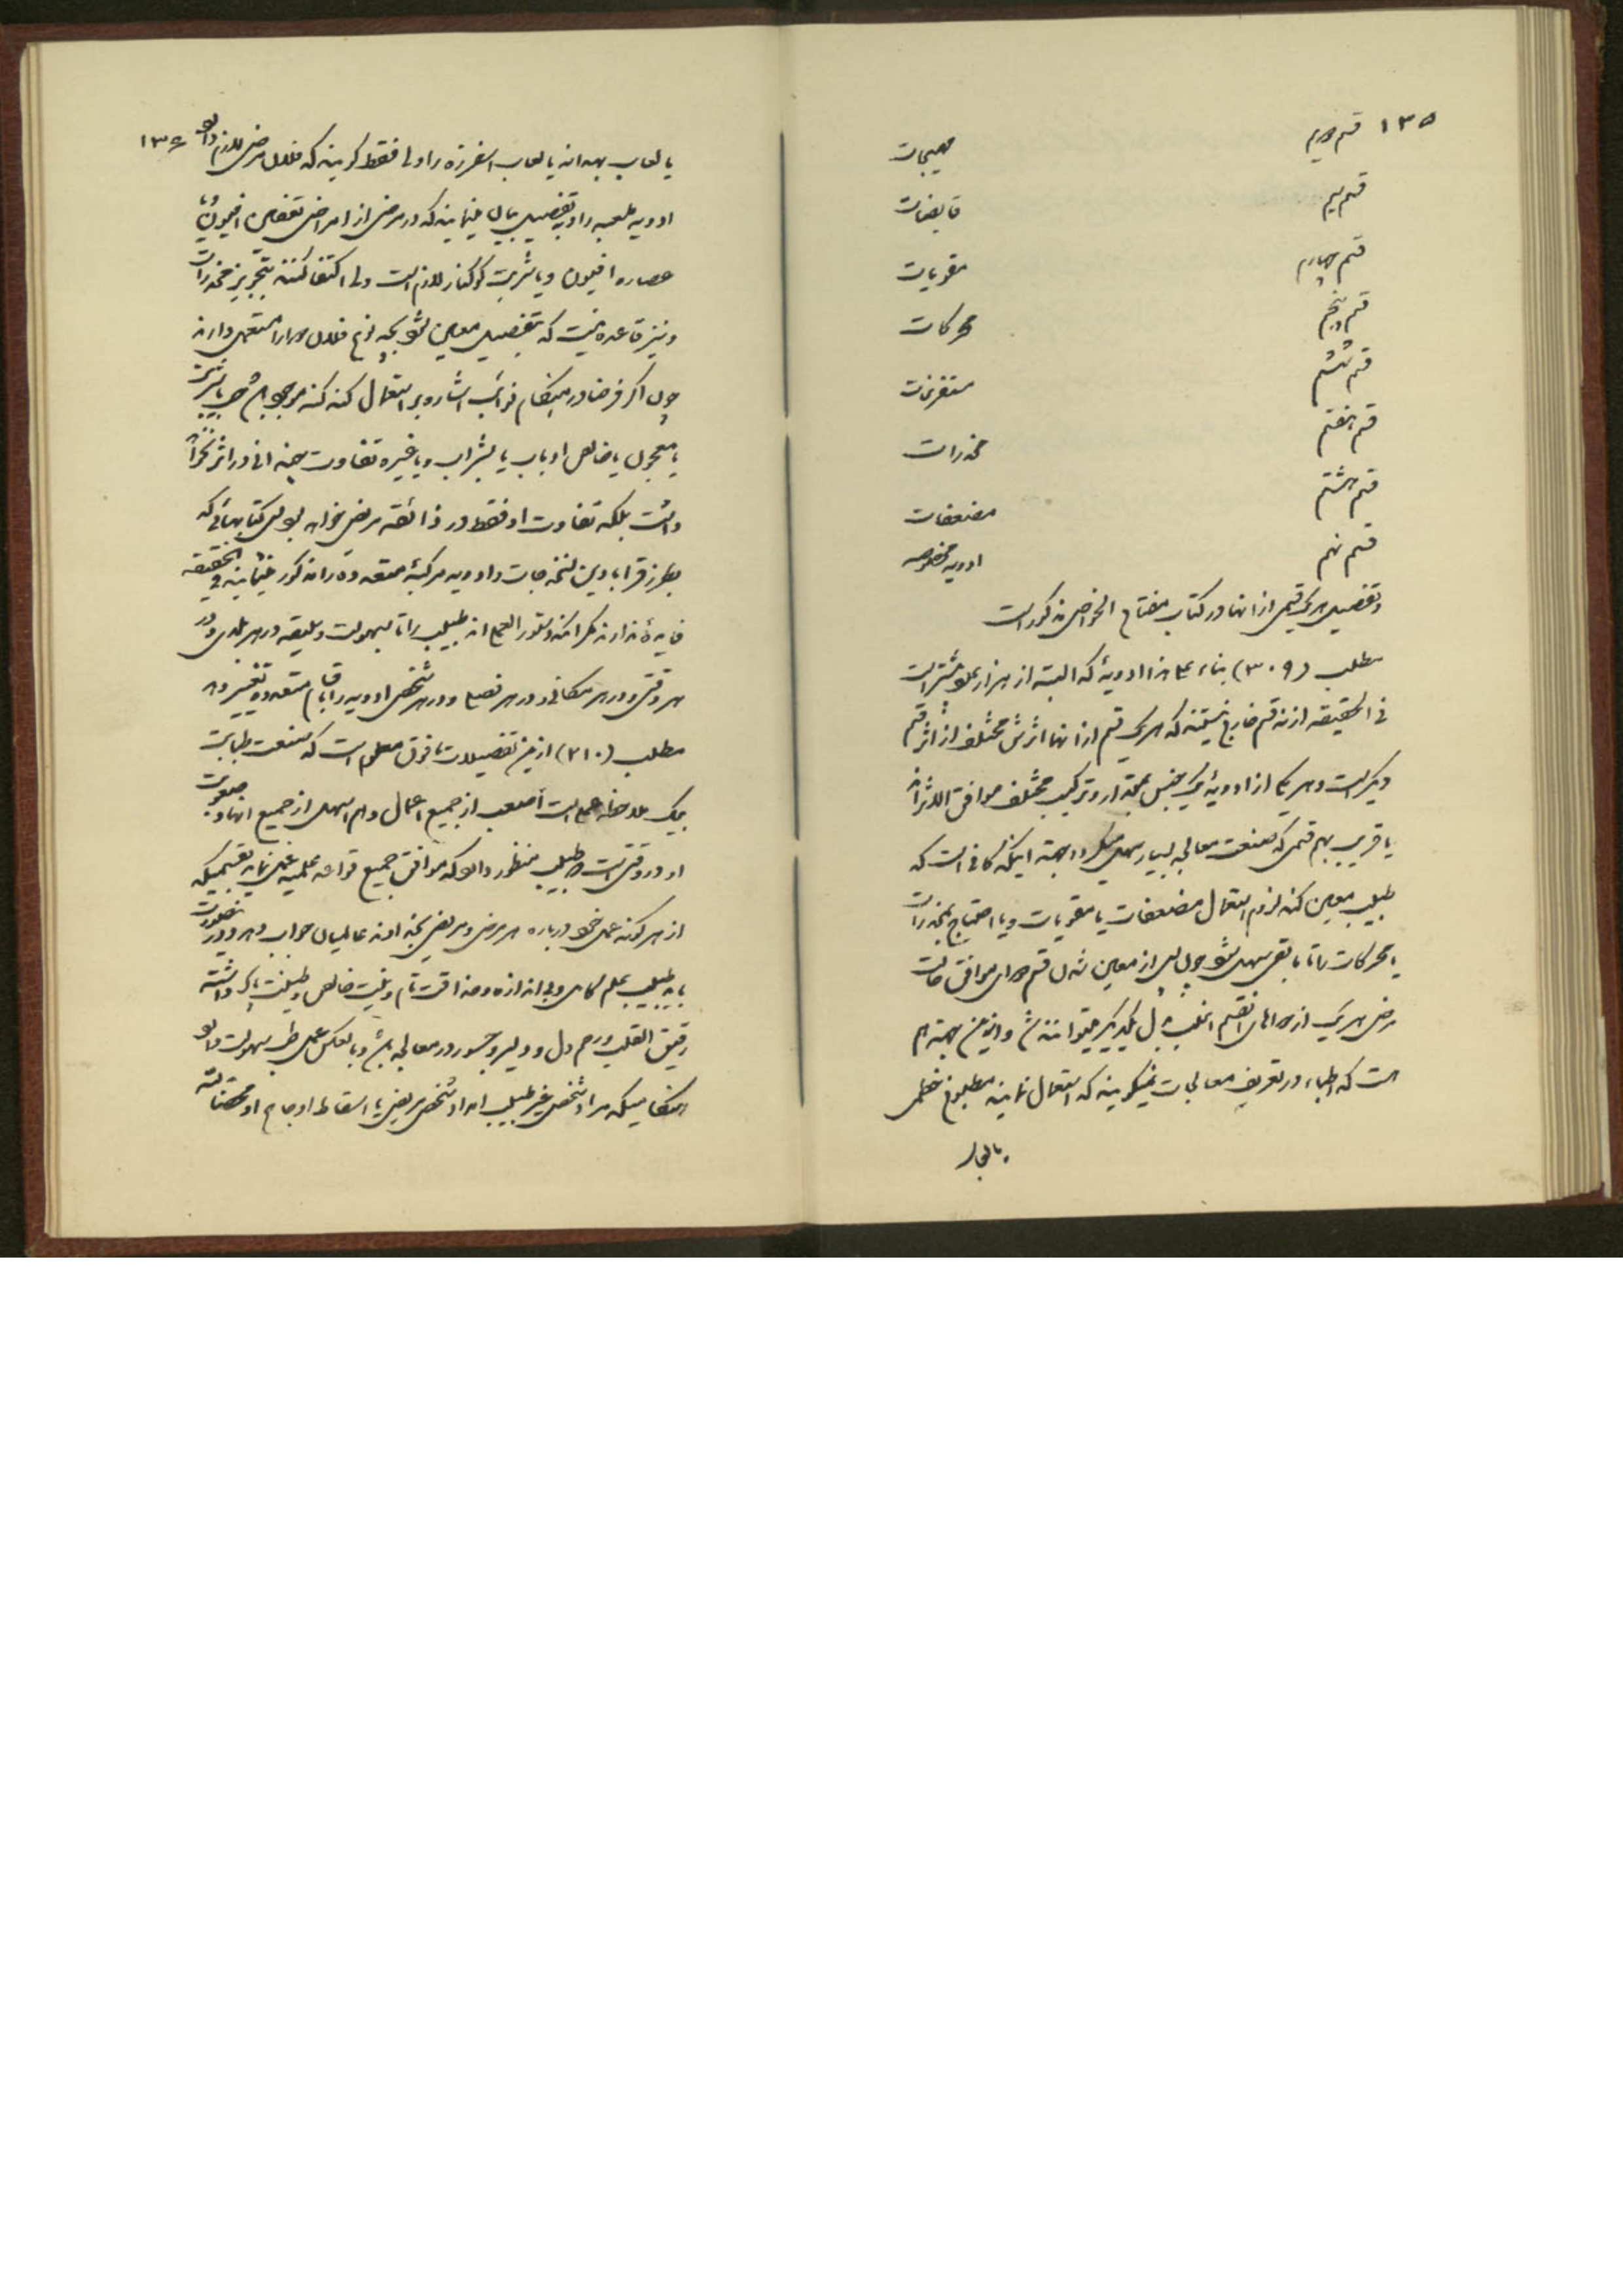 ١٣٥ قسم دویم مهیجات
قسم سیم قابضات
قسم چهارم مقویات
قسم پنجم محرکات
قسم ششم مستفرغات
قسم هفتم مخدرات
قسم هشتم مضعفات
قسم نهم ادویه مخصوصه
و تفصیل هر یک قسمی از انها در کتاب مفتاح الخواص مذکور است
مطلب (٣٠٩) بناء علی هذا ادویهٔ که البته از هزار علاوه‌تر است
فی الحقیقه از نه قسم خارج نیستند که هر یک قسم از انها اثرش مختلف از اثر قسم
دیگر است و هر یکی از ادویهٔ یک جنس بمقدار و ترکیب مختلف موافق الاثراند
یا قریب بهم قسمی که صنعت معالجه بسیار سهل میگردد بجهة اینکه کافی است که
طبیب معین کند لزوم استعمال مضعفات یا مقویات و یا احتیاج بمخدرات
یا محرکات را تا باقی سهل شود چون پس از معین شدن قسم دوای موافق حالت
مرض هر یک از دواهای انقسم اغلب بدل یکدیگر میتوانند شد و ازین جهة هم
است که اطباء در تعریف معالجات نمیگویند که استعمال نمایند مطبوخ خطمی
یا لعاب
١٣٦ یا لعاب بهدانه یا لعاب اسفرزه را ولی فقط گویند که فلان مرض لازم دارد
ادویه ملعبه را و بتفصیل بیان نمینمایند که در مرضی از امراض تنقیص افیون یا
عصاره افیون و یا شربت کوکنار لازم است ولی اکتفا کنند بتجویز مخدرات
و نیز قاعده نیست که بتفصیل معین شود بچه نوع فلان دوا را مستعمل دارند
چون اگر فرضا در هنگام نوائب اشاره بر استعمال کنه کنه مرجوع شد حب یا شربت
یا معجون یا خالص او باب یا بشراب و یا غیره تفاوت چندانی در اثر نخواهد
داشت بلکه تفاوت او فقط در ذائقه مریض خواهد بود پس کتابهائی که
بطرز قرابادین نسخه جات و ادویه مرکبهٔ متعدده را مذکور مینمایند فی الحقیقه
فایدهٔ ندارند مگر انکه دستور العمل اند طبیب را تا بسهولت و سلیقه در هر بلدی و در
هر وقتی و در هر مکانی و در هر فصلی و در هر شخصی ادویه را باقسام متعدده تغییر دهد
مطلب (٣١٠) ازین تفصیلات ما فوق معلوم است که صنعت طبابت
بیک ملاحظه عملی است اصعب از جمیع اعمال و هم اسهل از جمیع انها و صعوبت
او در وقتی است که طبیب منظور دارد که موافق جمیع قواعد علمیه عمل نماید بقسمیکه
از هر گونه عمل خود درباره هر مرض و مریض بخداوند عالمیان جواب دهد و در اینصورت
باید طبیب بعلم کامل و بی اندازه و حذاقت تام و نیت خالص و طینت پاک داشته
رقیق القلب و رحم دل و دلیر و جسور در معالجه باشد و بالعکس عمل طب سهولت دارد
هنگامیکه مراد شخص غیر طبیب امداد شخص مریض یا اسقاط اوجاع او محضا لله